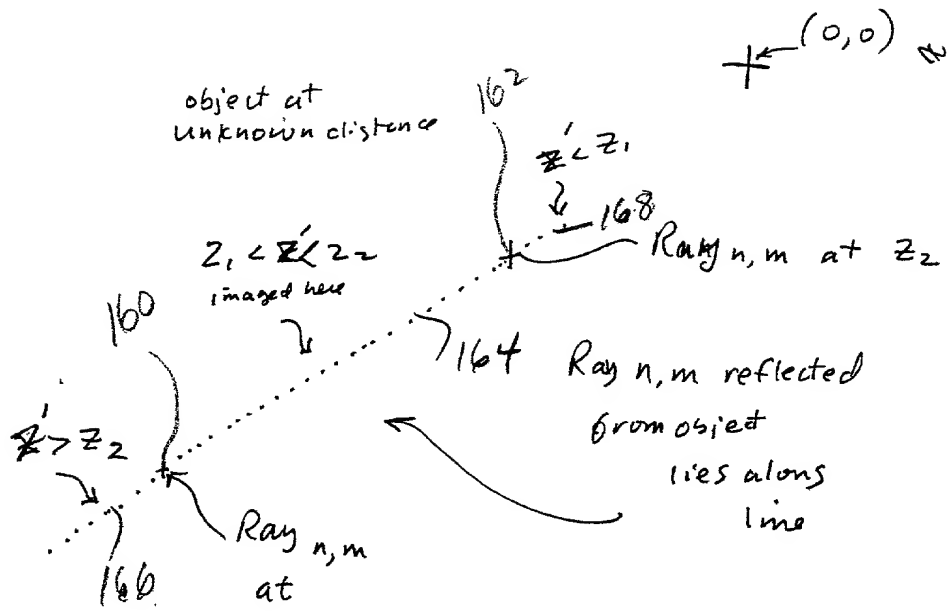 (0,0)
object at
unknown distence
162
z' < z₁
168
Ray n,m at z₂
z₁ < z' < z₂
imaged here
160
164
Ray n,m reflected
from object
lies along
line
z' > z₂
Ray n,m
at
166